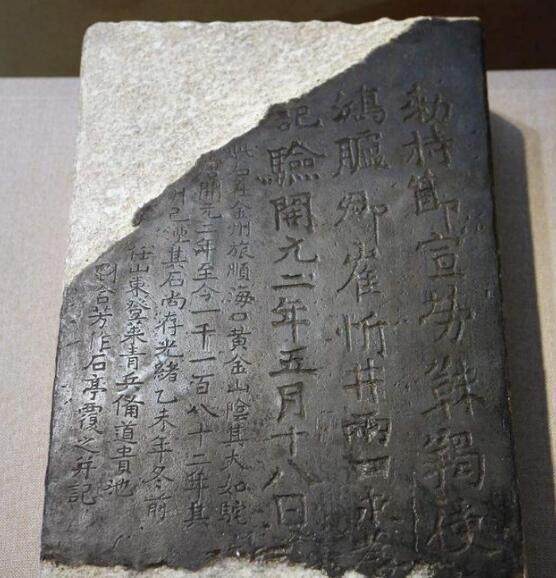 勅持節宣勞靺鞨使
鴻臚卿崔忻井兩口永為
記驗開元二年五月十八日
石在金州旅順海口黃金山陰其大如駝
開元二年至今一千一百八十二年其
井已湮其石尚存光緒乙未年冬前
任山東登萊青兵備道貴池
劉含芳作石亭覆之并記